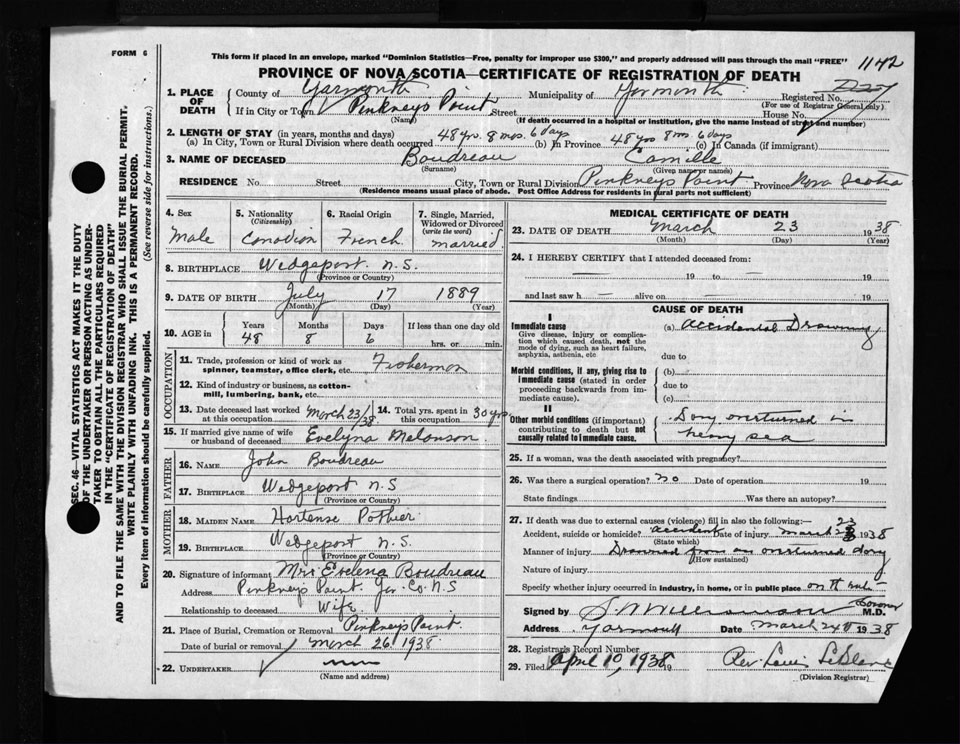 FORM 6
This form if placed in an envelope, marked "Dominion Statistics—Free, penalty for improper use $300," and properly addressed will pass through the mail "FREE"
1142
PROVINCE OF NOVA SCOTIA—CERTIFICATE OF REGISTRATION OF DEATH
1. PLACE OF DEATH
County of Yarmouth Municipality of Yarmouth Registered No.
(For use of Registrar General only)
If in City or Town Pinkneys Point Street House No.
(Name) (If death occurred in a hospital or institution, give the name instead of street and number)
2. LENGTH OF STAY (in years, months and days)
(a) In City, Town or Rural Division where death occurred 48 yrs. 8 mos. 6 days (b) In Province 48 yrs 8 ms. 6 days (c) In Canada (if immigrant)
3. NAME OF DECEASED Boudreau Camille
(Surname) (Given name or names)
RESIDENCE No. Street City, Town or Rural Division Pinkneys Point Province Nova Scotia
(Residence means usual place of abode. Post Office Address for residents in rural parts not sufficient)
4. Sex Male
5. Nationality (Citizenship) Canadian
6. Racial Origin French
7. Single, Married, Widowed or Divorced (write the word) married
8. BIRTHPLACE Wedgeport N.S.
(Province or Country)
9. DATE OF BIRTH July 17 1889
(Month) (Day) (Year)
10. AGE in Years Months Days If less than one day old
48 8 6 hrs. or min.
OCCUPATION
11. Trade, profession or kind of work as spinner, teamster, office clerk, etc. Fisherman
12. Kind of industry or business, as cotton-mill, lumbering, bank, etc.
13. Date deceased last worked at this occupation March 23/38
14. Total yrs. spent in this occupation 30 yrs
15. If married give name of wife or husband of deceased Evelyna Melanson
FATHER
16. NAME John Boudreau
17. BIRTHPLACE Wedgeport N.S
(Province or Country)
MOTHER
18. MAIDEN NAME Hortense Pothier
19. BIRTHPLACE Wedgeport N.S.
(Province or Country)
20. Signature of informant Mrs Evelena Boudreau
Address Pinkneys Point Yar. Co. N.S
Relationship to deceased Wife
21. Place of Burial, Cremation or Removal Pinkneys Point
Date of burial or removal March 26 1938
22. UNDERTAKER
(Name and address)
MEDICAL CERTIFICATE OF DEATH
23. DATE OF DEATH March 23 1938
(Month) (Day) (Year)
24. I HEREBY CERTIFY that I attended deceased from:
19 to 19
and last saw h alive on 19
CAUSE OF DEATH
I
Immediate cause
Give disease, injury or complication which caused death, not the mode of dying, such as heart failure, asphyxia, asthenia, etc
(a) accidental Drowning
due to
Morbid conditions, if any, giving rise to immediate cause (stated in order proceeding backwards from immediate cause).
(b)
due to
(c)
II
Other morbid conditions (if important) contributing to death but not causally related to immediate cause.
Dory overturned in
heavy sea
25. If a woman, was the death associated with pregnancy?
26. Was there a surgical operation? no Date of operation 19
State findings Was there an autopsy?
27. If death was due to external causes (violence) fill in also the following:—
Accident, suicide or homicide? accident Date of injury March 23 1938
(State which)
Manner of injury Drowned from an overturned dory
(How sustained)
Nature of injury
Specify whether injury occurred in industry, in home, or in public place
Signed by Coroner M.D.
Address Yarmouth Date March 24th 1938
28. Registrar's Record Number
29. Filed April 10, 1938 19 Rev. Louis LeBlanc
(Division Registrar)
SEC. 46—VITAL STATISTICS ACT MAKES IT THE DUTY
OF THE UNDERTAKER OR PERSON ACTING AS UNDER-
TAKER TO OBTAIN ALL THE PARTICULARS REQUIRED
IN THE "CERTIFICATE OF REGISTRATION OF DEATH"
AND TO FILE THE SAME WITH THE DIVISION REGISTRAR WHO SHALL ISSUE THE BURIAL PERMIT.
WRITE PLAINLY WITH UNFADING INK. THIS IS A PERMANENT RECORD.
Every item of information should be carefully supplied. (See reverse side for instructions.)